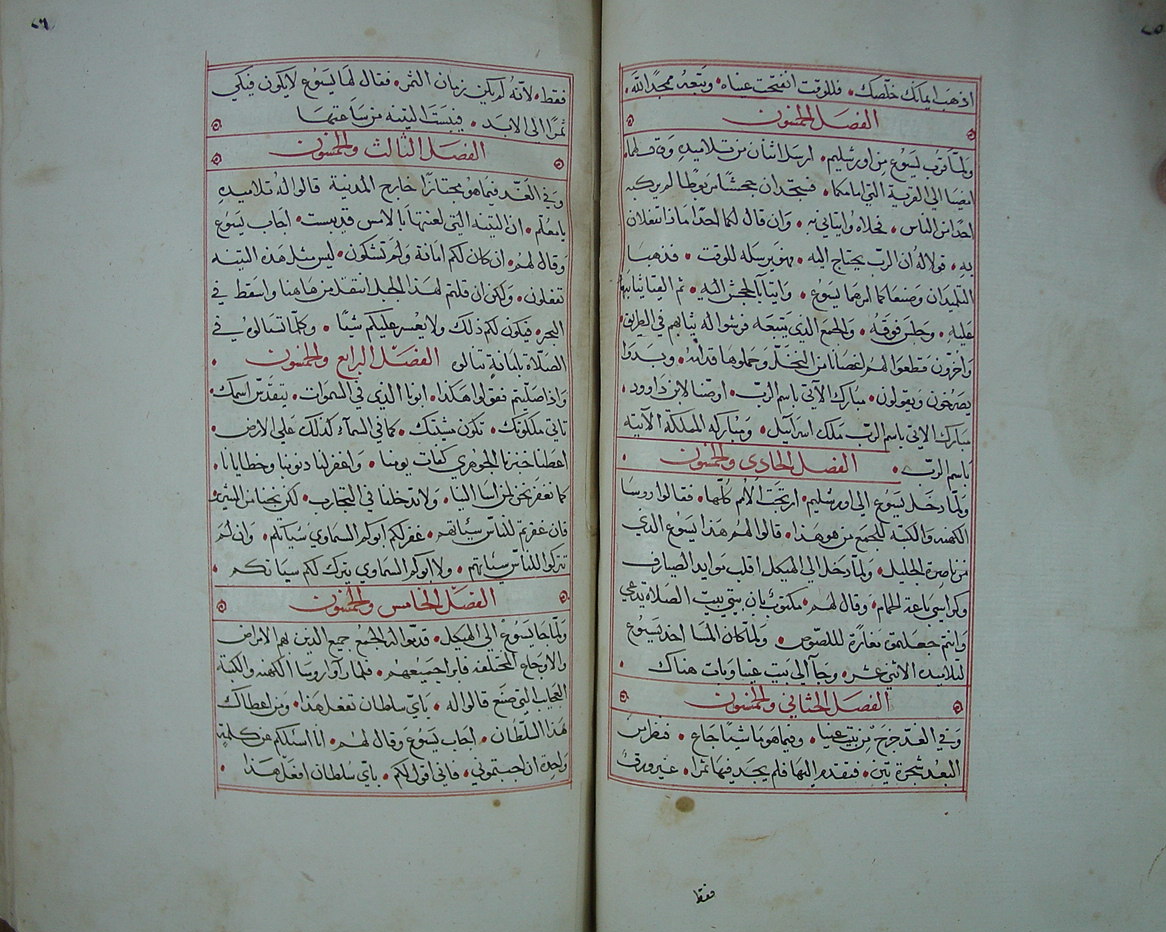 اذهب ايمانك خلّصك • فللوقت انفتحت عيناه • وتبعه ممجدًا الله •
الفصل الخمسون
ولمّا قرب يسوع من اورشليم • ارسل اثنان من تلاميذه وقال لهما •
امضيا الى القرية التي امامكما • فستجدان جحشًا مربوطًا لم يركبه
احدًا من الناس • فحلاه وايتاني به • وان قال لكما احدًا ماذا تفعلان
به • قولا له ان الرب يحتاج اليه • فهو يرسله للوقت • فذهبا
التلميذان وصنعا كما امرهما يسوع • واتيا بالجحش اليه • ثم القيا ثيابهم
عليه • وجلس فوقه • والجمع الذي يتبعه فرشوا له ثيابهم في الطريق
واخرون قطعوا لهم اغصانًا من النخل وحملوها قدامه • وبدوا
يصرخون ويقولون • مبارك الآتي باسم الرب • اوصنا لابن داوود •
مبارك الاتي باسم الرب ملك اسراييل • ومباركه المملكة الآتيه
باسم الرب • الفصل الحادى والخمسون
ولمّا دخل يسوع الى اورشليم • ارتجت الامم كلها • فقالوا روسا
الكهنه والكتبة للجمع من هو هذا • قالوا لهم هذا يسوع الذي
من ناصرة الجليل • ولمّا دخل الى الهيكل اقلب موايد الصيارف
وكراسي باعة الحمام • وقال لهم • مكتوب بان بيتي بيت الصلاة يدعي
وانتم جعلتموه مغارة للصوص • ولمّا كان المسا اخذ يسوع
تلاميذه الاثني عشر • وجآ الى بيت عنيا وبات هناك •
الفصل الثاني والخمسون
وفي الغد خرج من بيت عنيا • وفيما هو ماشيًا جاع • فنظر من
البعد شجرة تين • فتقدم اليها فلم يجد فيها ثمرًا • غير ورق
فقط
فقط • لانّه لم يكن زمان الثمر • فقال لها يسوع لا يكون فيكي
ثمرًا الى الابد • فيبست التينه من ساعتها
الفصل الثالث والخمسون
وفي الغد فيما هو مجتازًا خارج المدينة قالوا له تلاميذه
يا معلم • ان التينه التي لعنتها بالامس قد يبست • اجاب يسوع
وقال لهم • ان كان لكم امانة ولم تشكون • ليس مثل هذه التينه
تفعلون • ولكن ان قلتم لهذا الجبل انتقل من هاهنا واسقط في
البحر • فيكون لكم ذلك ولا يعسر عليكم شيًا • وكلما تسالوه في
الصلاة بامانةٍ تنالو الفصل الرابع والخمسون •
واذا صلّيتم فقولوا هكذا • ابونا الذي في السموات • يتقدس اسمك •
تاتي ملكوتك • تكون مشيتك • كما في السمآء كذلك على الارض •
اعطنا خبزنا الجوهري كفات يومنا • واغفر لنا ذنوبنا وخطايانا •
كما نغفر نحن لمن اسا الينا • ولا تدخلنا في التجارب • لكن نجنا من الشرير
فان غفرتم للناس سيّاتهم • غفر لكم ابوكم السماوي سياتكم • وان لم
تتركوا للناس سيّاتهم • ولا ابوكم السماوي يترك لكم سياتكم •
الفصل الخامس والخمسون
ولمّا جا يسوع الى الهيكل • قدموا له الجميع جميع الذين بهم الامراض
والاوجاع المختلفه فابرا جميعهم • فلما راوا روسا الكهنه والكتبة
العجايب التي صنع قالوا له • باي سلطان تفعل هذا • ومن اعطاك
هذا السلطان • اجاب يسوع وقال لهم • انا اسئلكم عن كلمةٍ
واحدة ان اجبتموني • فاني اقول لكم • باي سلطان افعل هذا •